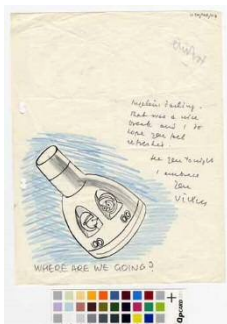 darling.
that was a nice
break and I do
hope you feel
refreshed
see you tonight
I embrace
you
Vicky
WHERE ARE WE GOING?